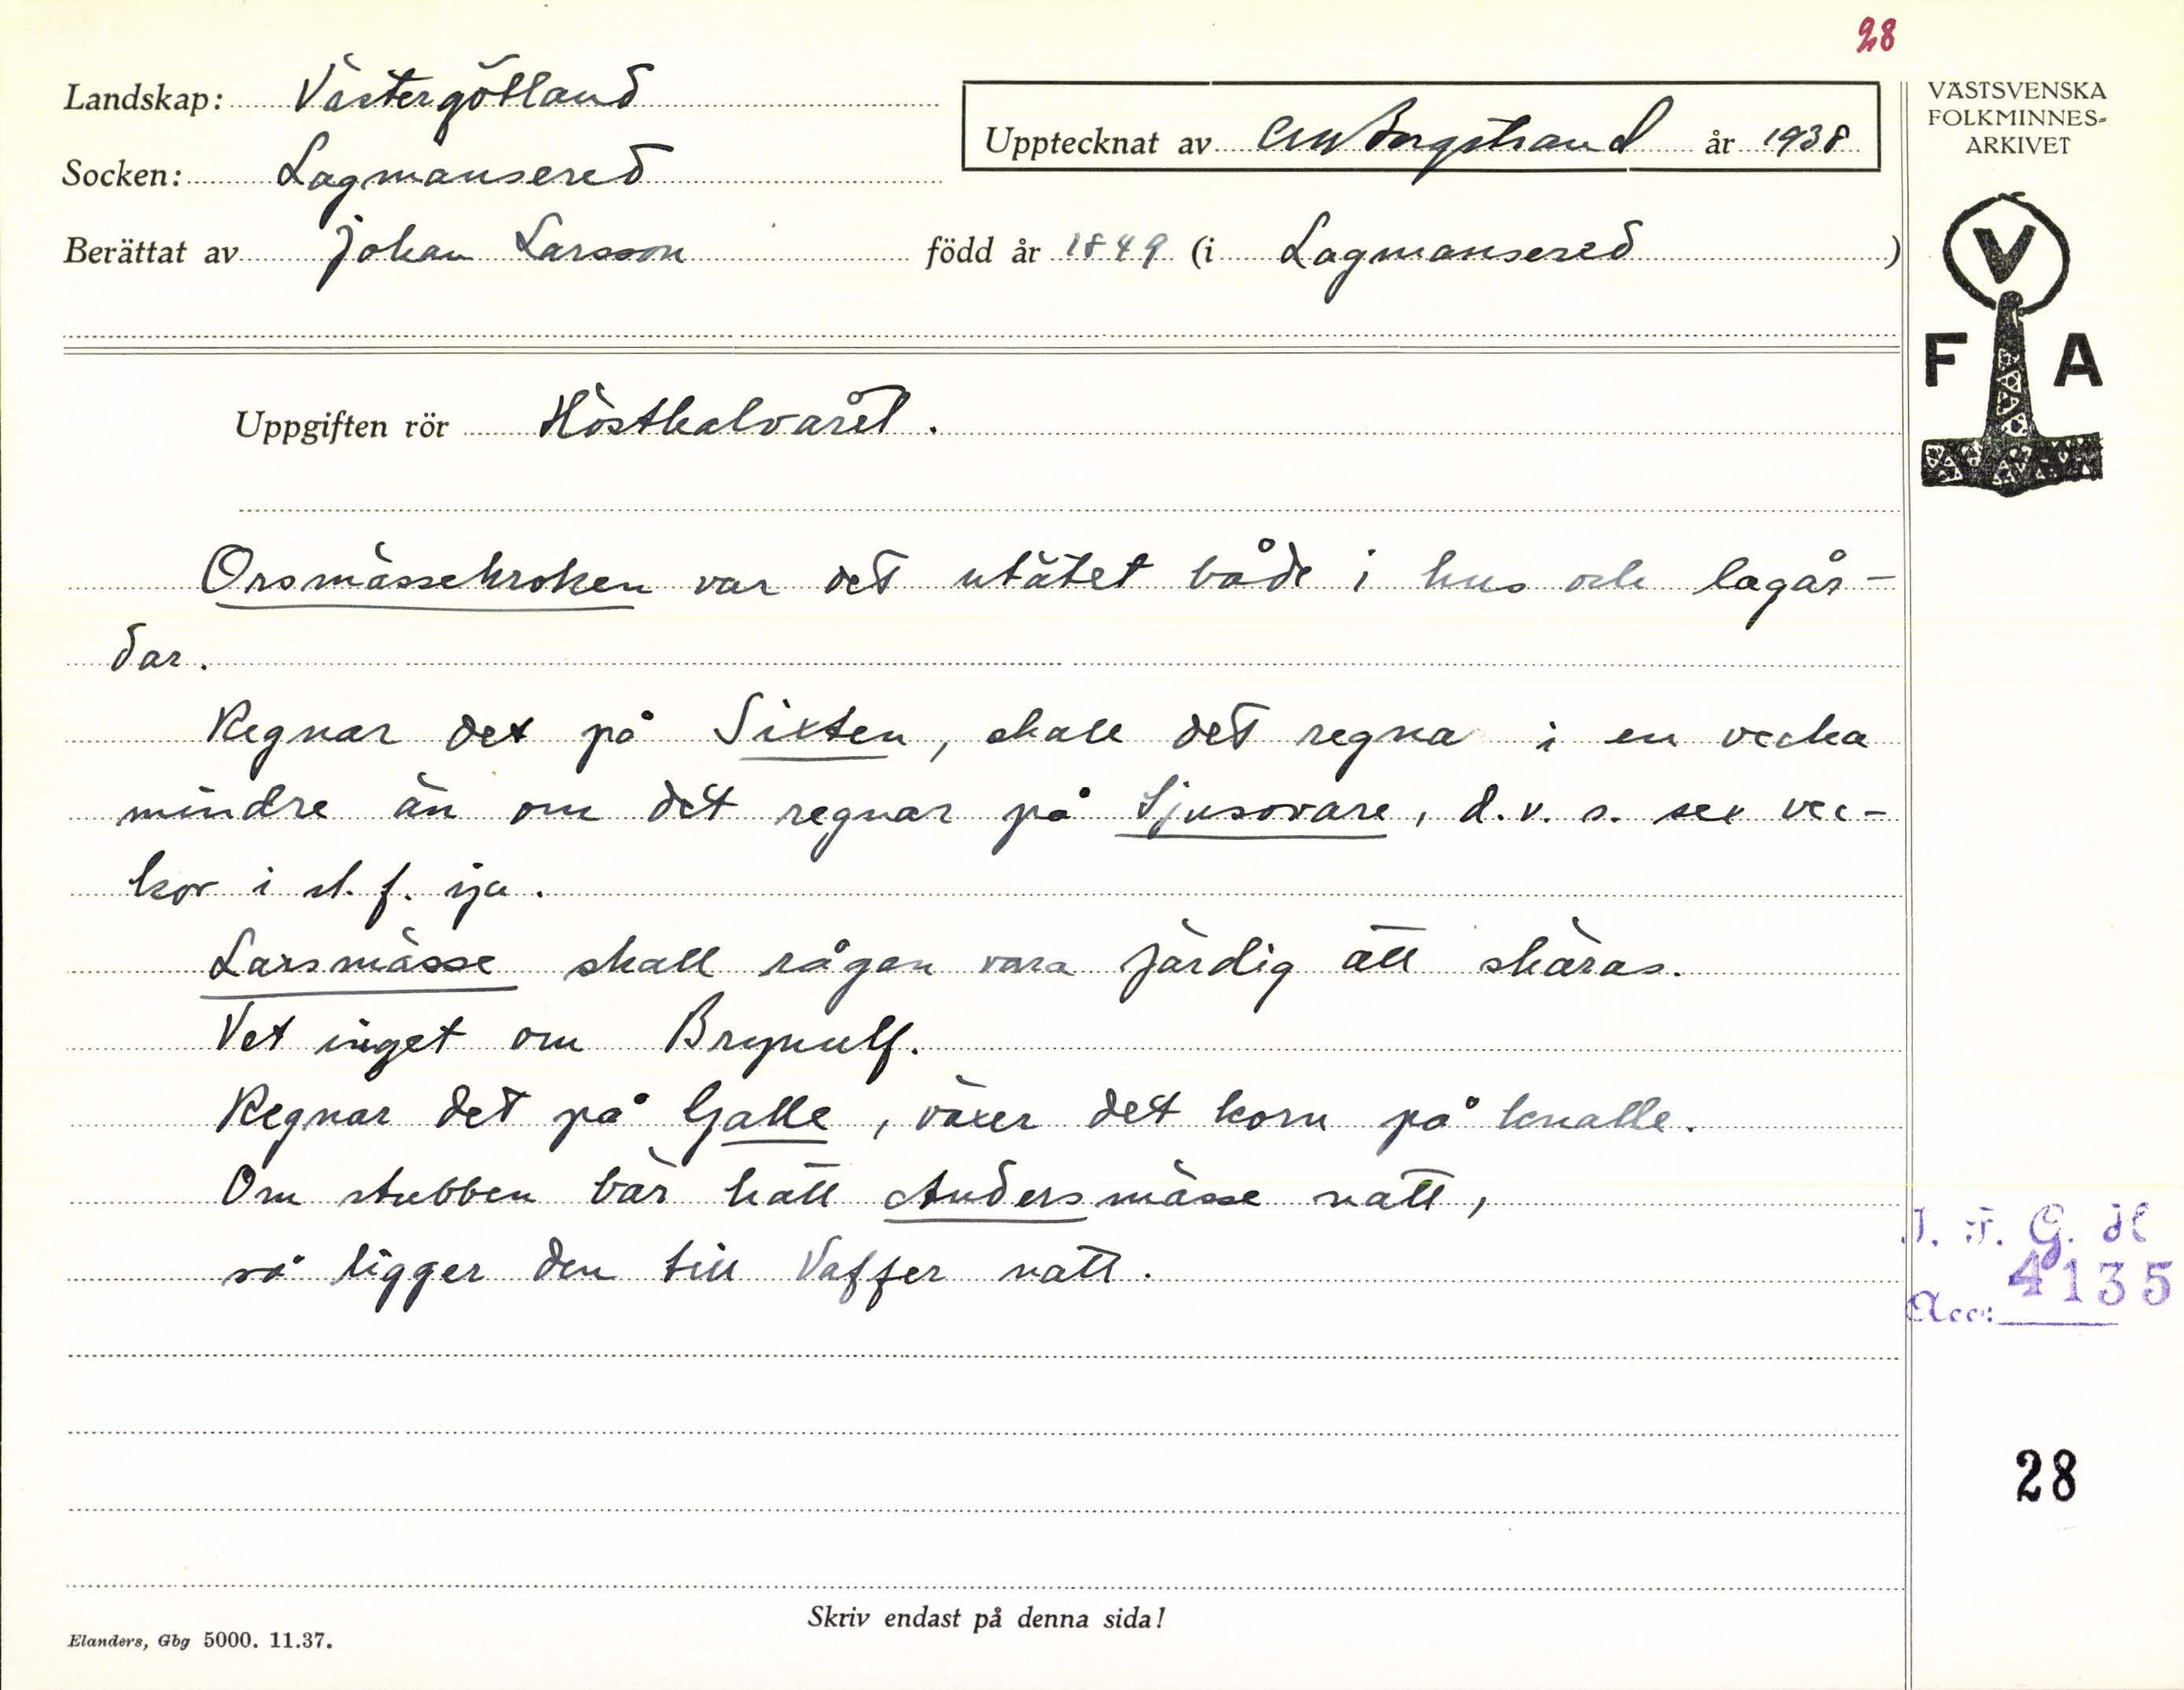 28
Landskap: Västergötland
Upptecknat av CM Bergstrand år 1938
VÄSTSVENSKA
FOLKMINNES-
ARKIVET
Socken: Lagmansered
Berättat av Johan Larsson född år 1849 (i Lagmansered)
V
F A
Uppgiften rör Hösthalvåret.
Orsmässekroken var det utätet både i hus och lagår-
dar.
Regnar det på Sixten, skall det regna i en vecka
mindre än om det regnar på Sjusovare, d.v.s. sex vec-
kor i st. f. sju.
Larsmässe skall rågen vara färdig att skäras.
Vet inget om Brynulf.
Regnar det på Galle, växer det korn på knalle.
Om stubben bär hatt Andersmässe natt,
så ligger den till Vaffer natt.
I. F. G. H
4135
Acc:
28
Skriv endast på denna sida!
Elanders, Gbg 5000. 11.37.